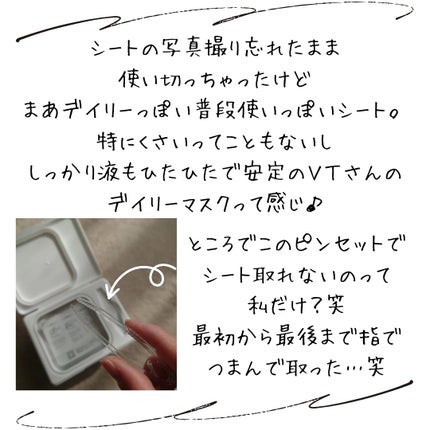 シートの写真撮り忘れたまま
使い切っちゃったけど
まあデイリーっぽい普段使いっぽいシート。
特にくさいってこともないし
しっかり液もひたひたで安定のVTさんの
デイリーマスクって感じ♪
ところでこのピンセットで
シート取れないのって
私だけ？笑
最初から最後まで指で
つまんで取った…笑